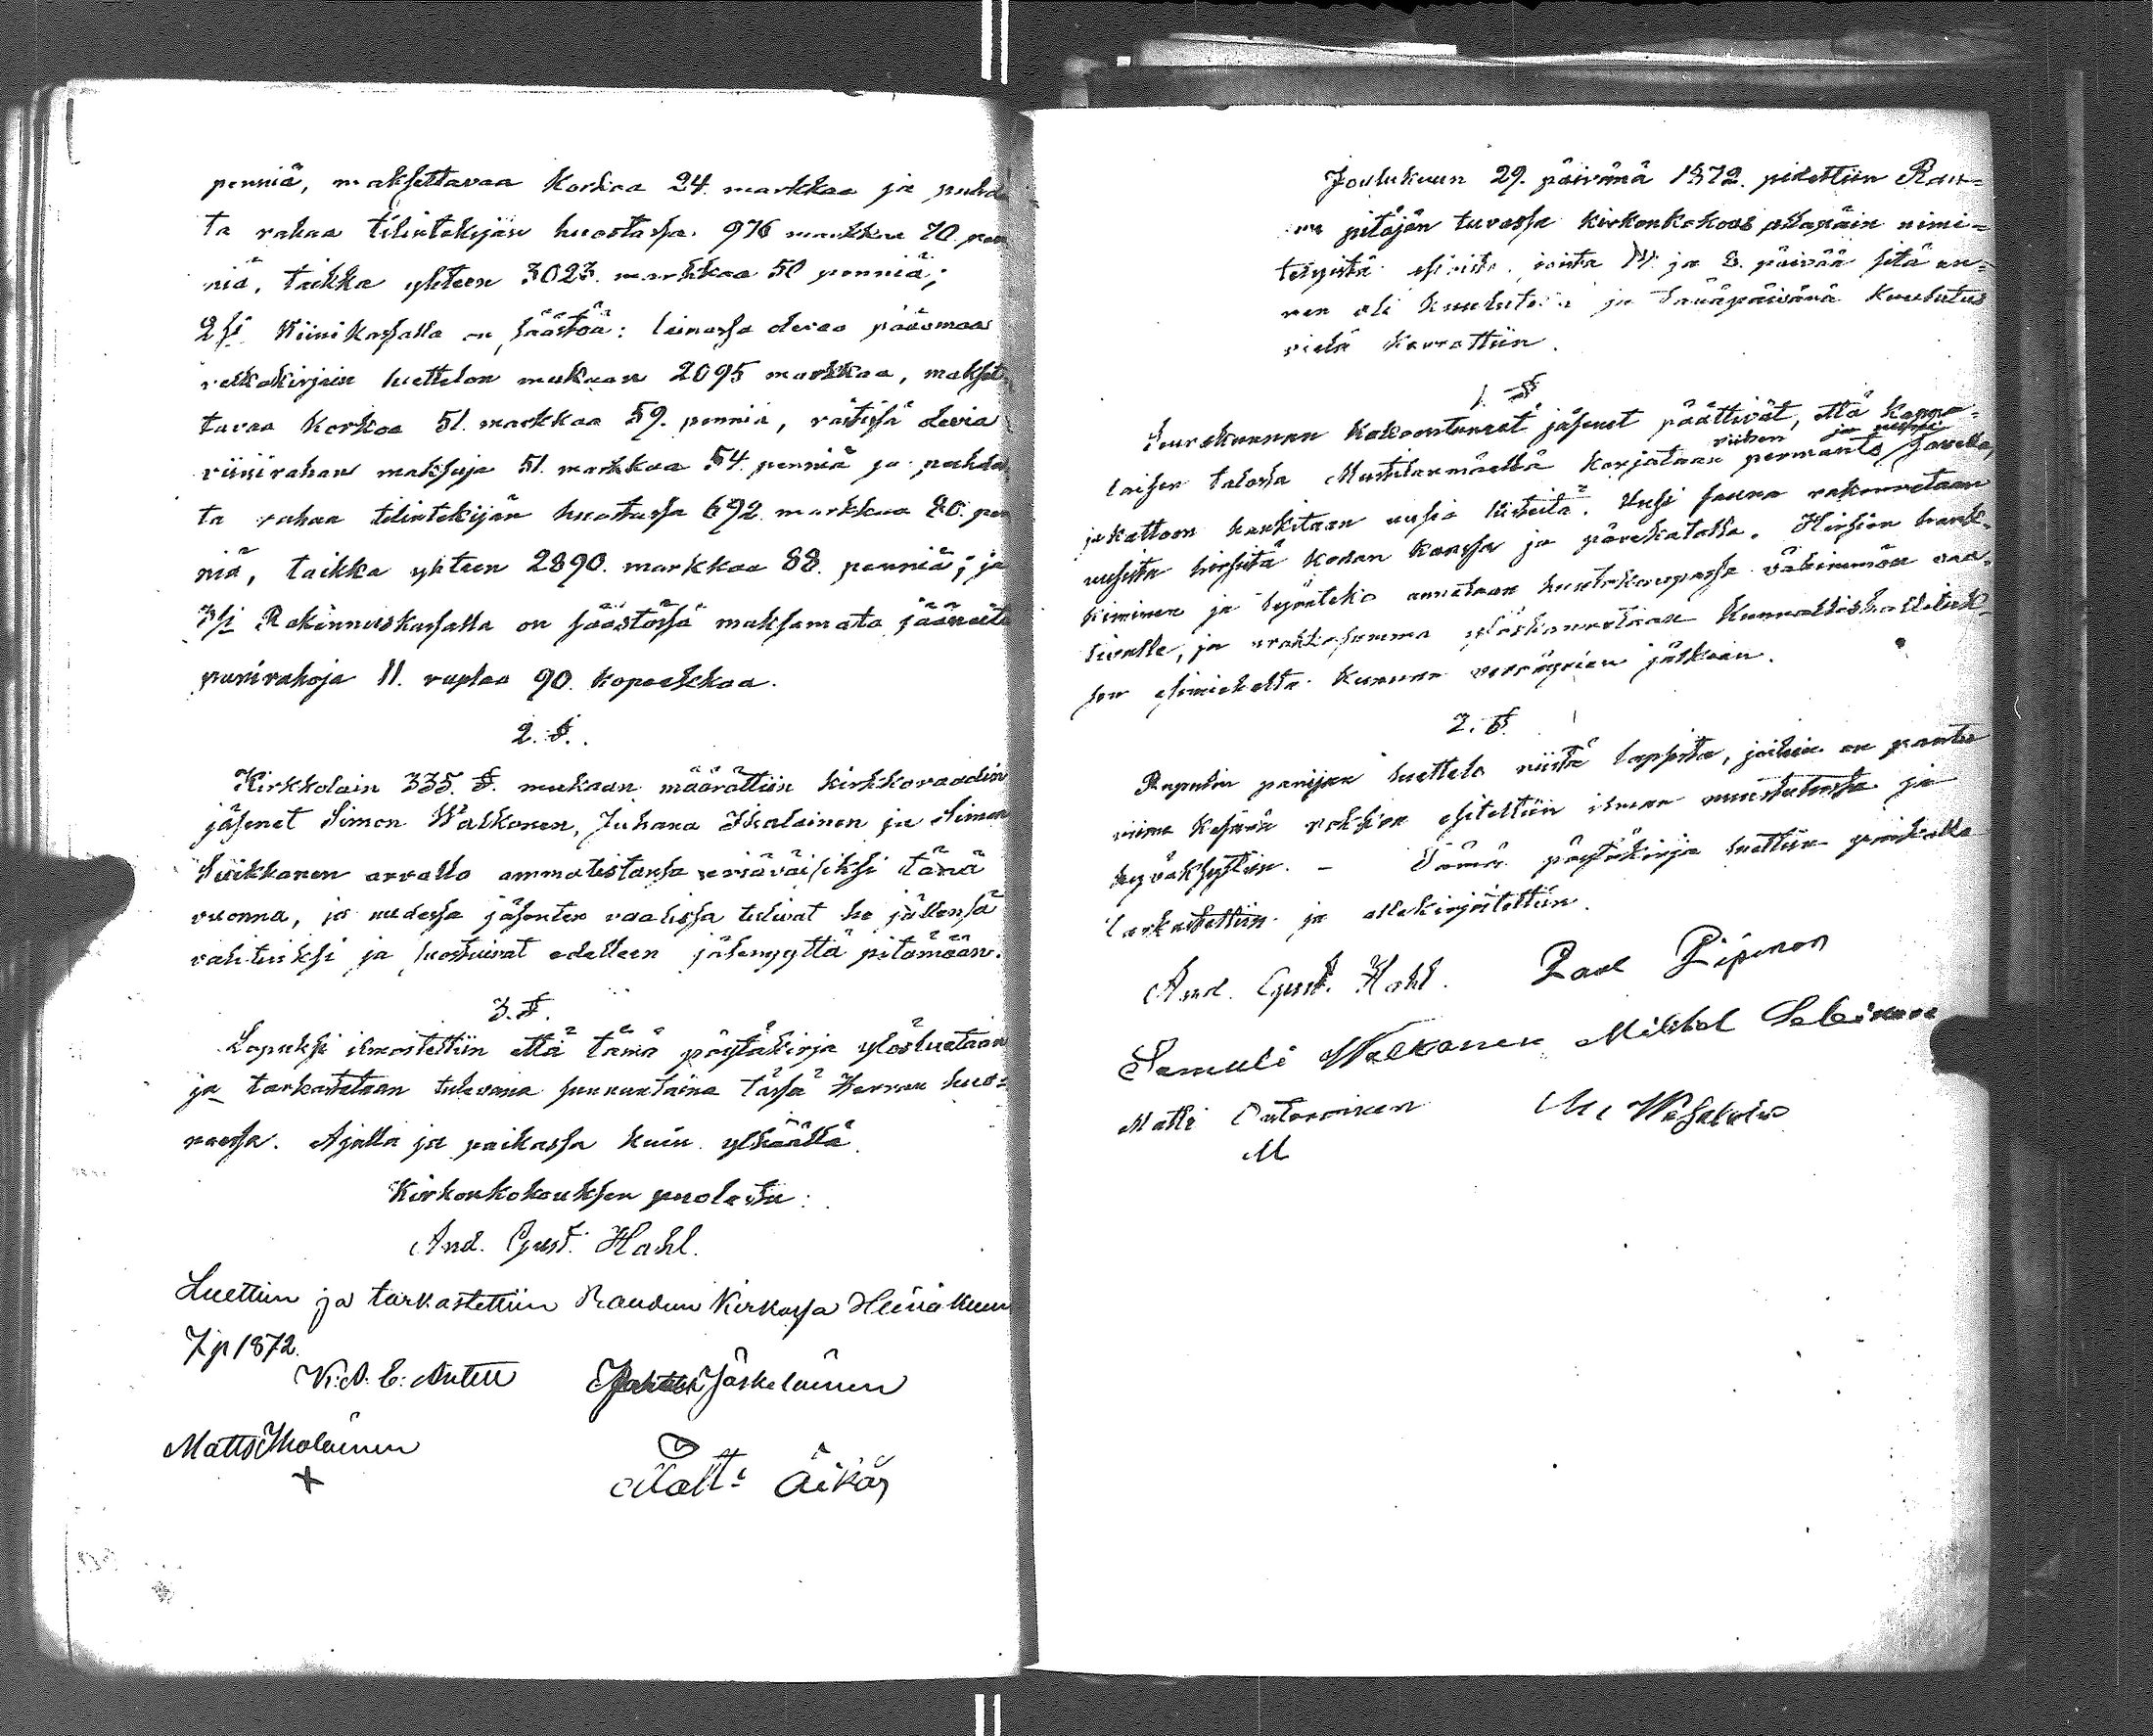 penniä, maksettavaa Korkoa 24. markkaa ja puhas-
ta rahaa tilintekijän huostassa 976 markkaa 70. pen
niä, taikka yhteen 3023. markkaa 50 penniä;
2ksi Viinikassalla on säästöä: lainassa olevaa pääomaa
velkakirjain luettelon mukaan 2095 markkaa, maksett
tavaa Korkoa 51. markkaa 59. penniä, rästissä olevia
viinirahan maksuja 51. markkaa 54. penniä ja puhdas
ta rahaa tilintekijän huostassa 692. markkaa 80. pen
niä, taikka yhteen 2890. markkaa 88. penniä; ja
3ksi Rakennuskassalla on säästössä maksamata jääneitä
rahoja 11. ruplaa 90. kopeekkaa.
2. §.
Kirkkolain 335. §. mukaan määrättiin kirkkoraadin
jäsenet Simon Walkonen, Juhana Ikalainen ja Simon
Suikkanen arvalla ammatistansa eriäväisiksi tänä
vuonna, ja uudessa jäsenten vaalissa tulivat he jällensä
valituiksi ja suostuivat edelleen jäsenyyttä pitämään.
3. §.
Lopuksi ilmoitettiin että tämä pöytäkirja ylösluetaan
ja tarkastetaan tulevana sunnuntaina tässä Herran huo=
neessa. Ajalla ja paikassa kuin ylhäällä.
Kirkonkokouksen puolesta:
And. Gust. Hahl.
Luettiin ja tarkastettiin Raudun Kirkossa Heinäkuun
7 p 1872.
K: A. E: Antell Jäskeläinen
Matts Iholainen
x
Matti Äikäs
Joulukuun 29. päivänä 1872. pidettiin Rau=
un pitäjän tuvassa kirkonkokous allapäin nimi=
tetyistä asioista, joista ja 8. päivää sitä en=
nen oli kuulutettu ja tänäpäivänä kuulutus
vielä kerrottiin.
1. §
Seurakunnan kokoontuneet jäsenet päättivät, että kappa=
riihen ja uuni
laisen talossa Mustilanmäellä korjataan permanto savella,
ja kattoon hankitaan uusia liisteitä. Uusi sauna rakennetaan
uusista hirsistä kodan kanssa ja pärekatolla. Hirsien hank=
kiminen ja työnteko annetaan huutokaupassa vähimmän vaa=
tivalle, ja urakkasumma ylöskannetaan Kunnallishallituk=
sen esimieheltä kunnan veroäyrien jälkeen.
2. §.
Rapulin panijan luettelo niistä lapsista, joihin on pantu
viime kesänä rokkoa esitettiin ilman muistutusta ja
hyväksyttiin. - Tämä pöytäkirja luettiin paikalla
tarkastettiin ja allekirjoitettiin.
And. Gust. Hahl. Paul Pipinon
Samuli Walkonen Mikkel
Matti
M